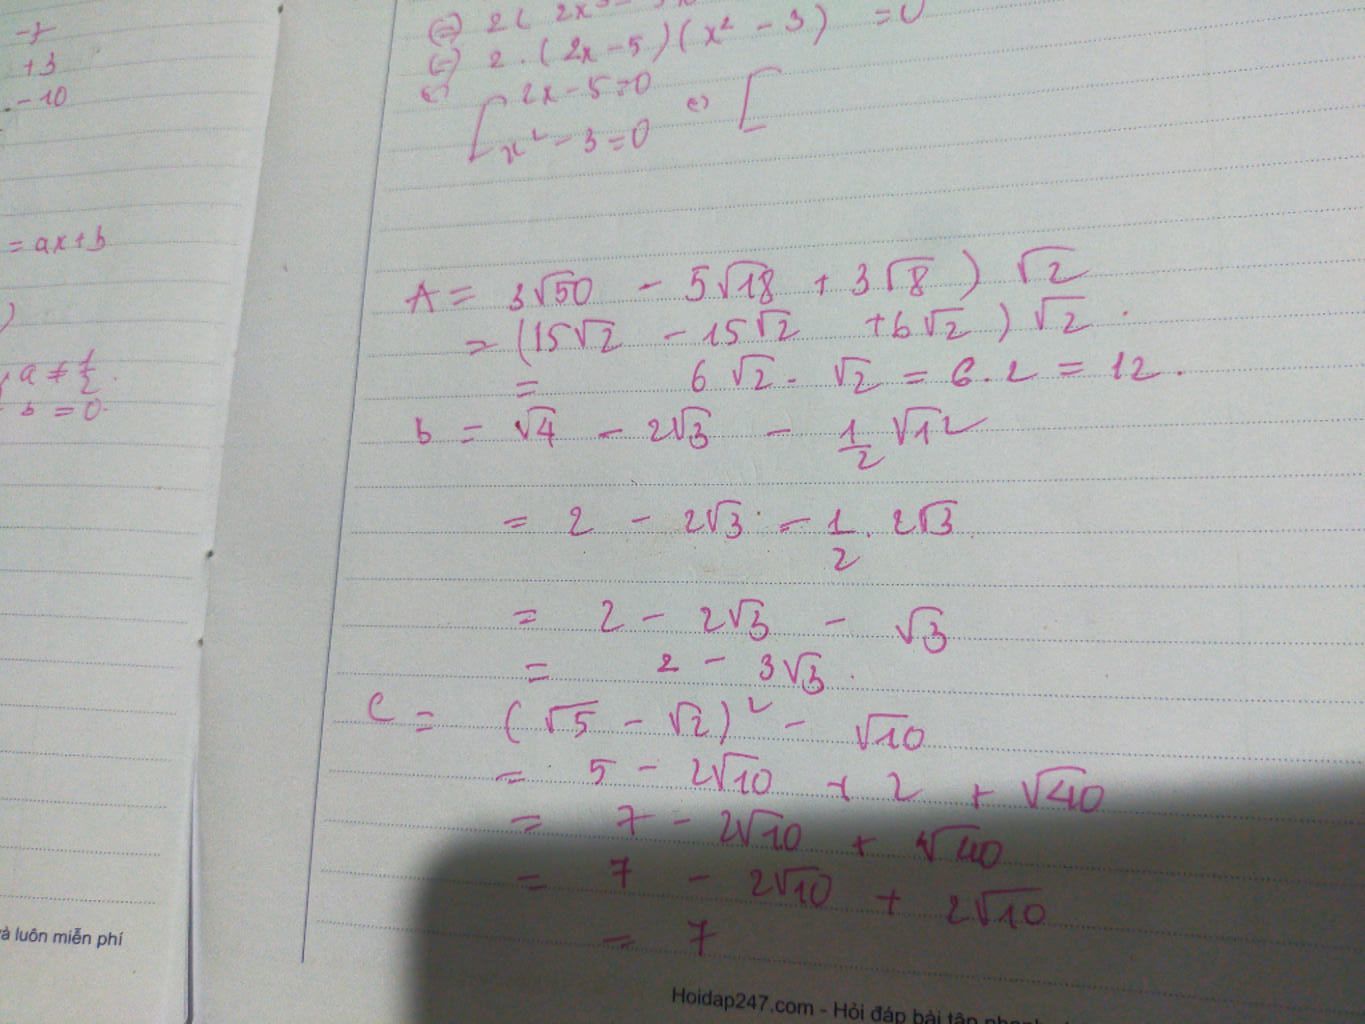 -7
+3
-10
= ax + b
)
a ≠ 1/2.
b = 0.
à luôn miễn phí
(=) 2(2x³
(=) 2.(2x-5)(x² - 3) = 0
[ 2x - 5 = 0
x² - 3 = 0 <=> [
A = 3√50 - 5√18 + 3√8 ) √2
= (15√2 - 15√2 + 6√2) √2.
= 6√2. √2 = 6.2 = 12.
b = √4 - 2√3 - 1/2 √12
= 2 - 2√3 - 1/2. 2√3
= 2 - 2√3 - √3
= 2 - 3√3.
C = (√5 - √2)² - √10
= 5 - 2√10 + 2 + √40
= 7 - 2√10 + √40
= 7 - 2√10 + 2√10
= 7
Hoidap247.com - Hỏi đáp bài tập